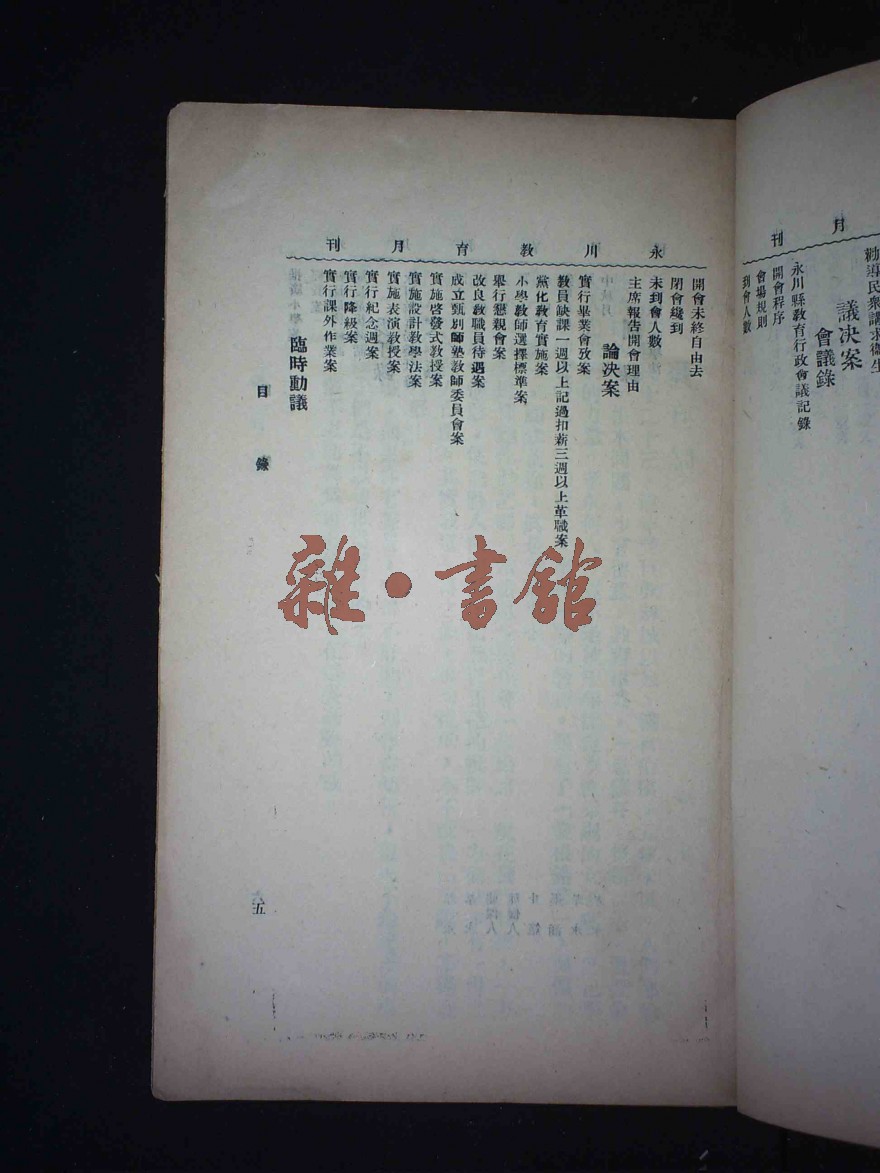 勸導民衆講求衛生
議決案
會議錄
永川縣教育行政會議記錄
開會程序
會場規則
到會人數
月刊
永川教育月刊
開會未終自由去
閉會纔到
未到會人數
主席報告開會理由
論決案
實行畢業會攷案
教員缺課一週以上記過扣薪三週以上革職案
黨化教育實施案
小學教師選擇標準案
舉行懇親會案
改良教職員待遇案
成立甄別師塾教師委員會案
實施啓發式教授案
實施設計教學法案
實施表演教授案
實行紀念週案
實行降級案
實行課外作業案
臨時動議
目錄
五
雜·書館